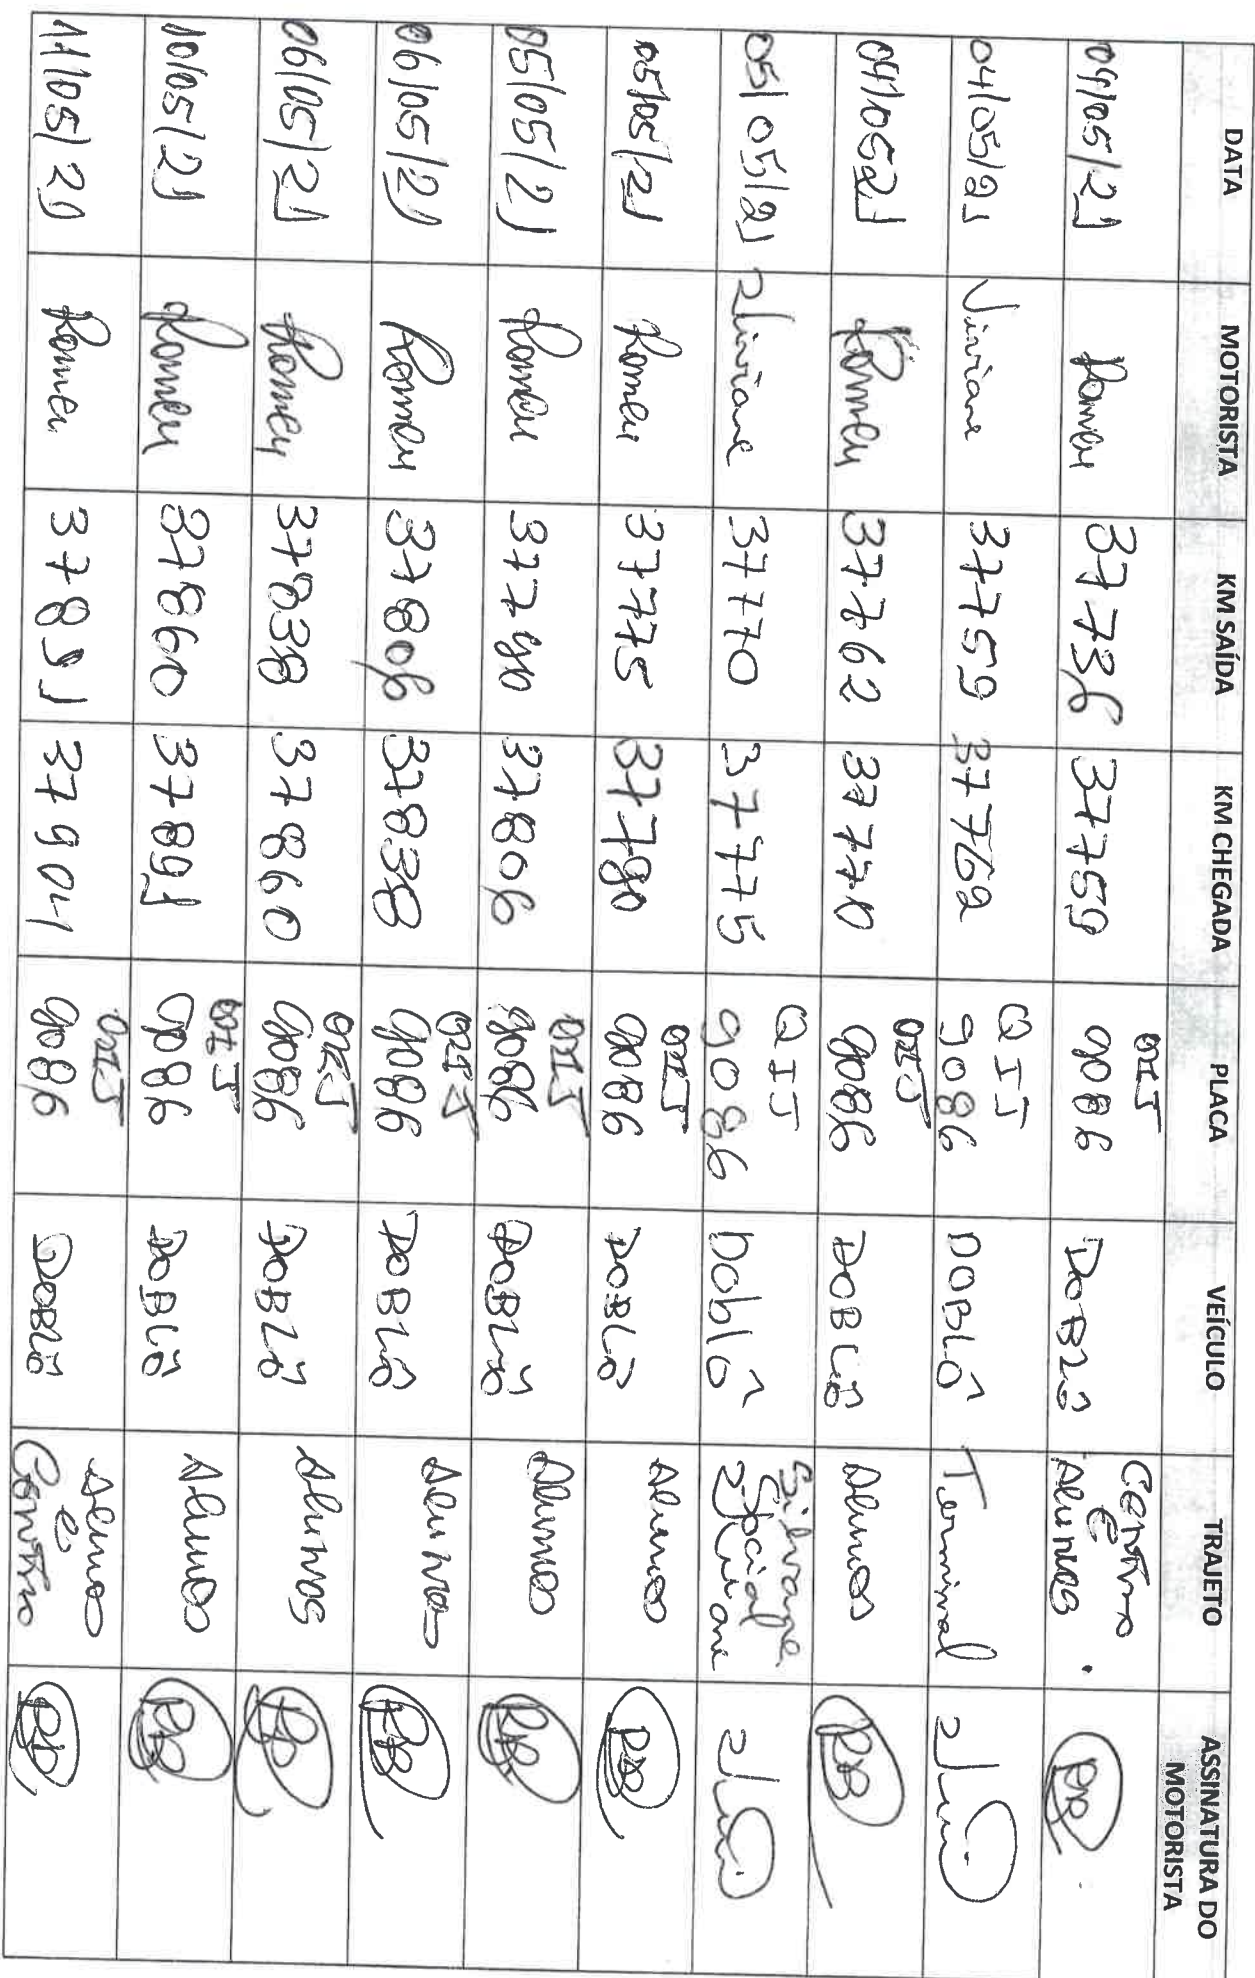 DATA MOTORISTA KM SAÍDA KM CHEGADA PLACA VEÍCULO TRAJETO ASSINATURA DO MOTORISTA
04/05/21 Romeu 37736 37759 QIJ 9086 DOBLÔ Centro e Alunos.
04/05/21 Viviane 37759 37762 QIJ 9086 DOBLÔ Terminal
04/0521 Romeu 37762 37770 QIJ 9086 DOBLÔ Alunos RB
05/05/21 Viviane 37770 37775 QIJ 9086 Doblô Silvane Social Viviane
05/05/21 Romeu 37775 37790 QIJ 9086 DOBLÔ Alunos RB
05/05/21 Romeu 37790 37806 QIJ 9086 DOBLÔ Alunos
06/05/21 Romeu 37806 37838 QIJ 9086 DOBLÔ Alunos
06/05/21 Romeu 37838 37860 QIJ 9086 DOBLÔ Alunos
10/05/21 Romeu 37860 37891 QIJ 9086 DOBLÔ Alunos RB
11/05/21 Romeu 37891 37904 QIJ 9086 DOBLÔ Alunos e Centro